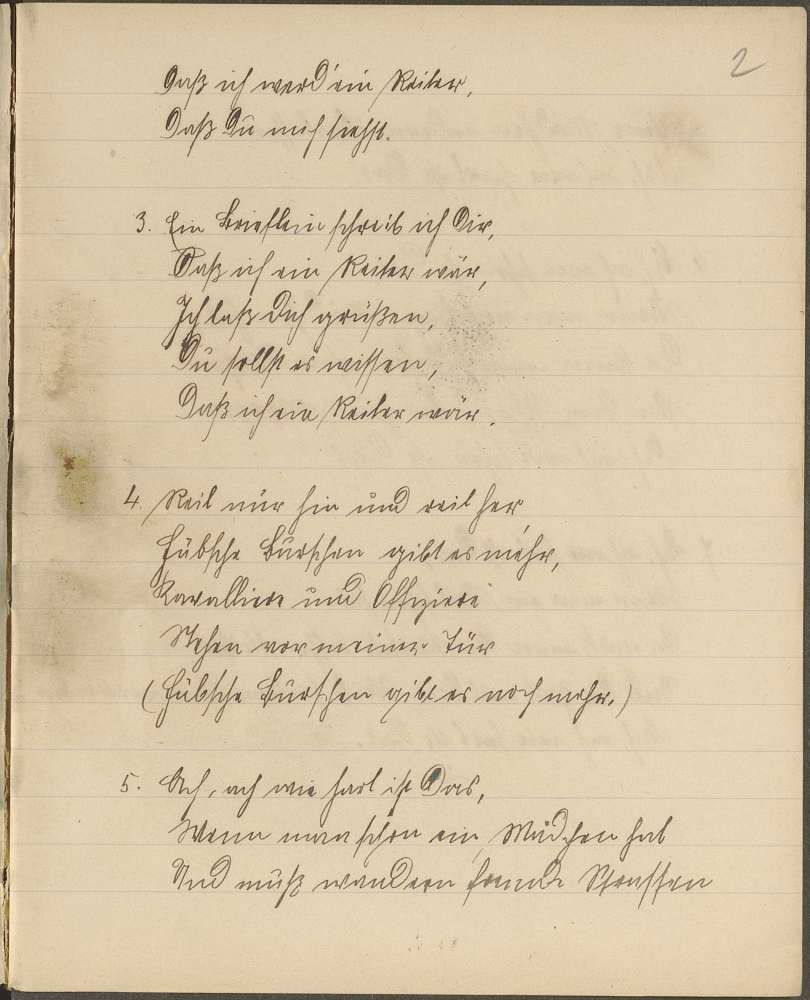 2
Daß ich werd' ein Reiter,
Daß Du mich siehst.
3. Ein Brieflein schreib ich Dir,
Daß ich ein Reiter wär,
Ich laß Dich grüßen,
Du sollst es wissen,
Daß ich ein Reiter wär.
4. Reit nur hin und reit her
Hübsche Burschen gibt es mehr,
Kavalliere und Offiziere
Stehen vor meiner Tür
(Hübsche Burschen gibt es noch mehr.)
5. Ach, ach wie hart ist Das,
Wenn man schon ein Mädchen hat
Und muß wandern fremde Strassen